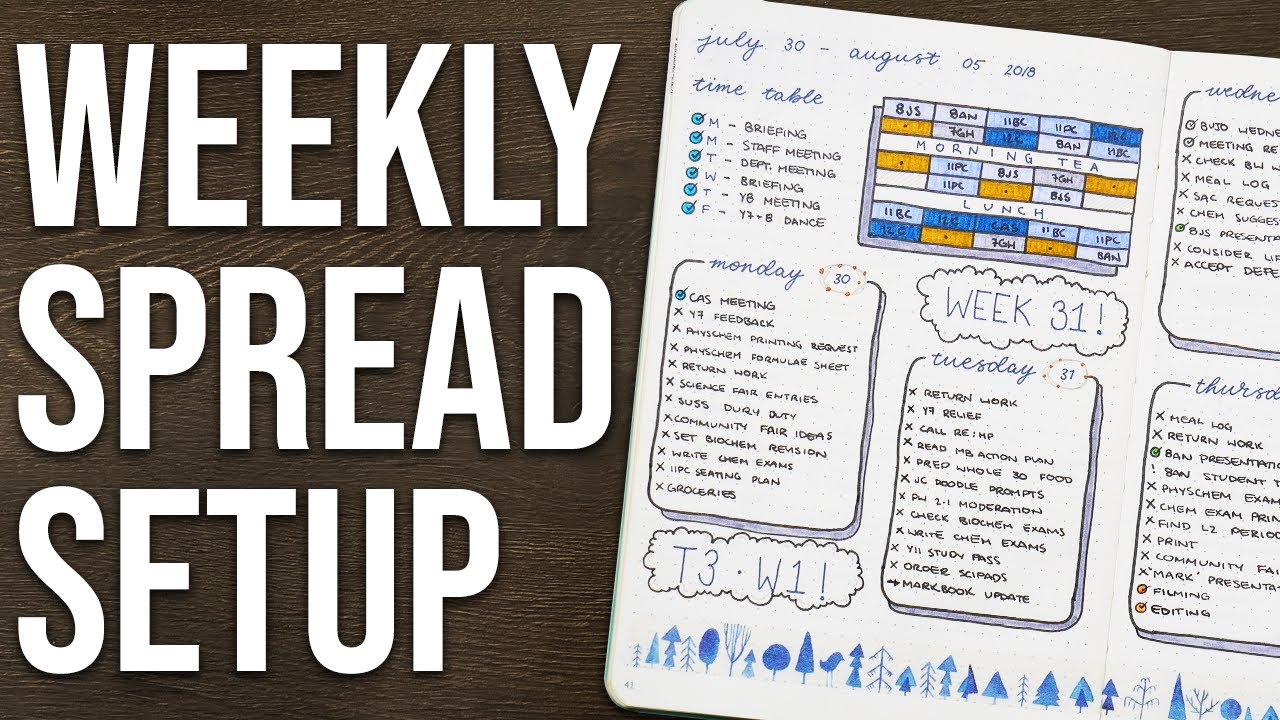 WEEKLY
SPREAD
SETUP
july 30 - august 05 2018
time table
M - BRIEFING
M - STAFF MEETING
T - DEPT. MEETING
W - BRIEFING
T - Y8 MEETING
F - Y7+8 DANCE
8JS 8AN 11BC 11PC 12C
7GH 12C 8AN 11BC
MORNING TEA
11PC 8JS 7GH
11PC 8JS
LUNCH
11BC 12C CAS 11BC 11PC
12C 7GH 8AN
monday 30
CAS MEETING
Y7 FEEDBACK
PHYSCHEM PRINTING REQUEST
PHYSCHEM FORMULAE SHEET
RETURN WORK
SCIENCE FAIR ENTRIES
SUSS DURY DUTY
COMMUNITY FAIR IDEAS
SET BIOCHEM REVISION
WRITE CHEM EXAMS
11PC SEATING PLAN
GROCERIES
T3 · W1!
WEEK 31!
tuesday 31
RETURN WORK
Y7 RELIEF
CALL RE: HP
READ MB ACTION PLAN
PREP WHOLE 30 FOOD
JC DOODLE PROMPTS
PN 2.1 MODERATION
CHECK BIOCHEM EXAMS
WRITE CHEM EXAMS
Y11 STUDY PASS
ORDER SCIPADS
MARKBOOK UPDATE
41
wedne
BUJO WEDNE
MEETING RE
CHECK BLI
MEAL LOG
SAC REQUES
CHEM SUGGES
8JS PRESENTA
CONSIDER UP
ACCEPT DEFE
thursd
MEAL LOG
RETURN WORK
8AN PRESENTATION
! 8AN STUDENT
PHYSCHEM EXAM
CHEM EXAM PRIN
FIND L2 PERIOD
PRINT
COMMUNITY FAI
"MARK" PRESENTA
FILMING
EDITING